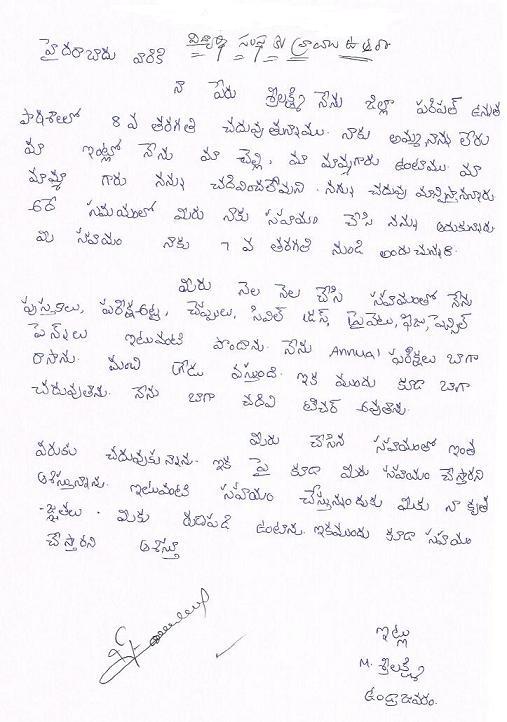 విద్యార్థి సంస్థ
హైదరాబాదు వారికి
నా పేరు శ్రీలక్ష్మి నేను జిల్లా పరిషత్ ఉన్నత
పాఠశాలలో 8 వ తరగతి చదువుతున్నాము. నాకు అమ్మ,నాన్న లేరు
మా ఇంట్లో నేను మా చెల్లి, మా మామ్మగారు ఉంటాము. మా
మామ్మ గారు నన్ను చదివించలేమని. నన్ను చదువు మాన్పిస్తానన్నారు
అదే సమయంలో మీరు నాకు సహాయం చేసి నన్ను ఆదుకున్నారు
మీ సహాయం నాకు 7 వ తరగతి నుండి అందుచున్నది.
మీరు నెల నెల చేసి సహాయంతో నేను
పుస్తకాలు, పరీక్ష అట్ట, చెప్పులు, సివిల్ డ్రస్, ప్రైవేటు, ఫీజు, పెన్సిల్
పెన్నులు ఇటువంటి పొందాను. నేను Annual పరీక్షలు బాగా
రాసాను. మంచి గ్రేడు వస్తుంది. ఇక ముందు కూడా బాగా
చదువుతాను. నేను బాగా చదివి టీచర్ అవుతాను.
మీరు చేసిన సహాయంతో ఇంత
వరుకు చదువుకున్నాను. ఇక పై కూడా మీరు సహాయం చేస్తారని
ఆశిస్తున్నాను. ఇటువంటి సహాయం చేస్తున్నందుకు మీకు నా కృత
-జ్ఞతలు. మీకు రుణపడి ఉంటాను. ఇకముందు కూడా సహాయం
చేస్తారని ఆశిస్తూ
ఇట్లు
M. శ్రీలక్ష్మి
ఉండ్రాజవరం.